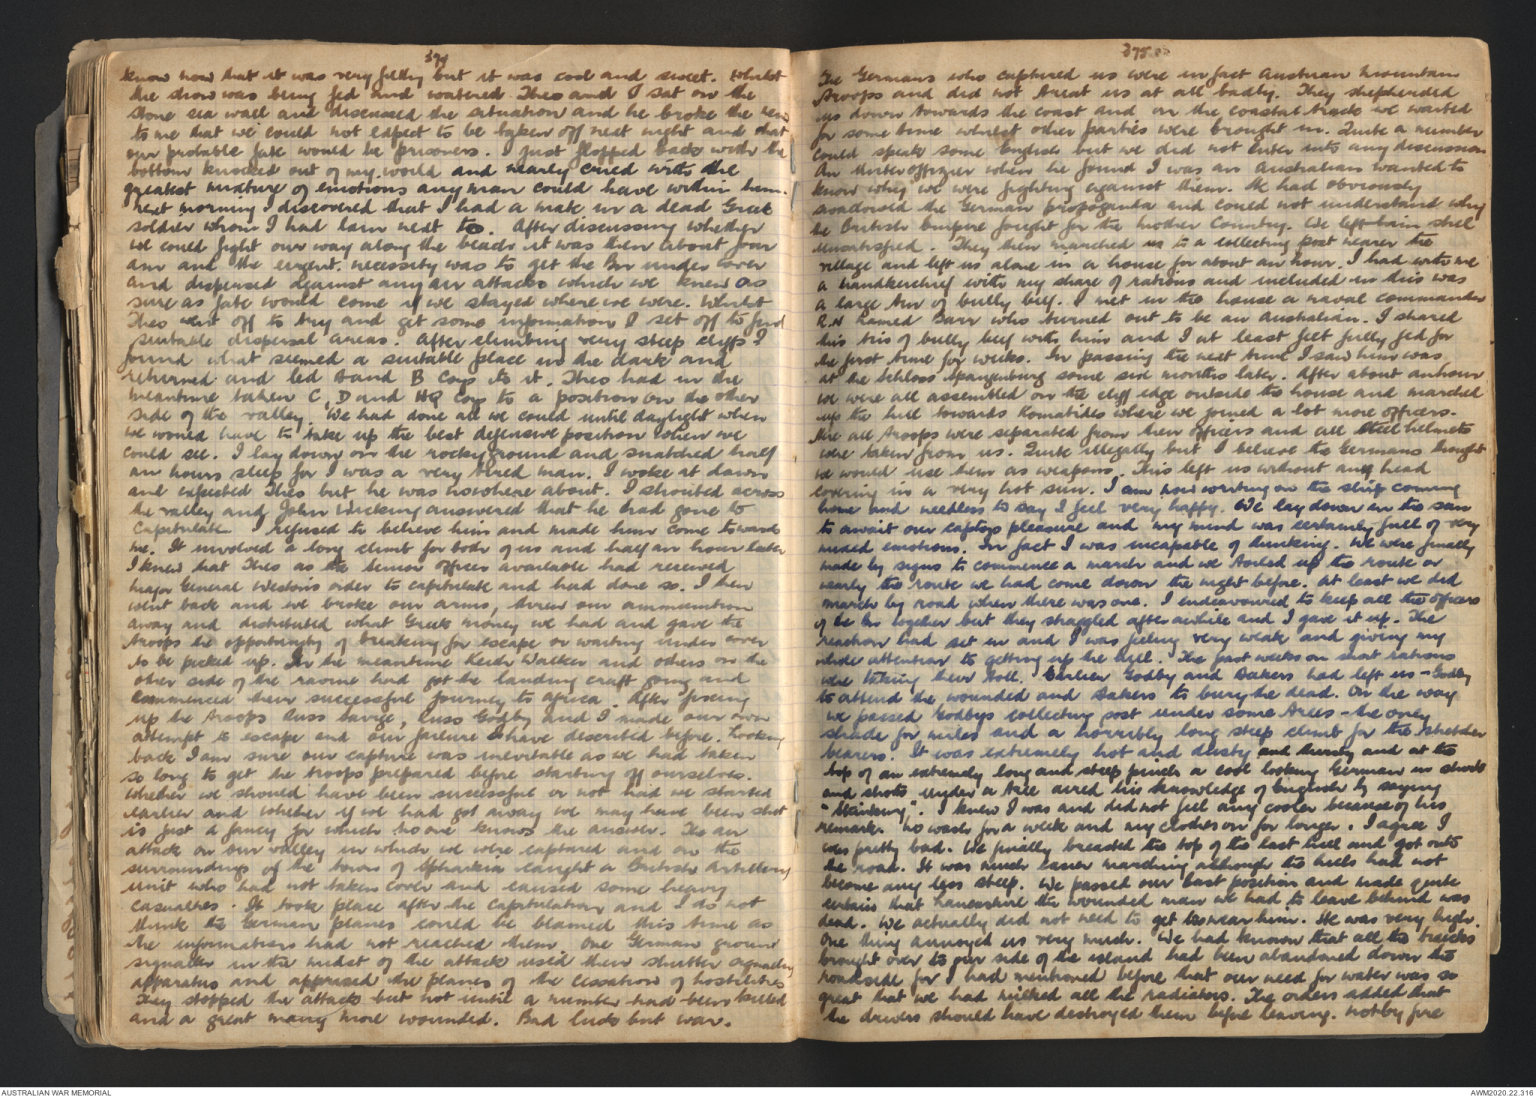 374
know now that it was very filthy but it was cool and sweet. Whilst
the show was being fed and watered Theo and I sat on the
stone sea wall and discussed the situation and he broke the news
to me that we could not expect to be taken off next night and that
our probable fate would be prisoners. I just flopped back with the
bottom knocked out of my world and nearly cried with the
greatest mixture of emotions any man could have within him.
next morning I discovered that I had a mate in a dead Greek
soldier whom I had lain next to. After discussing whether
we could fight our way along the beach it was then about four
am and the urgent necessity was to get the Bn under cover
and dispersed against any air attacks which we knew as
sure as fate would come if we stayed where we were. Whilst
Theo went off to try and get some information I set off to find
suitable dispersal areas. After climbing very steep cliffs I
found what seemed a suitable place in the dark and
returned and led A and B Coys to it. Theo had in the
meantime taken C, D and HQ Coys to a position on the other
side of the valley. We had done all we could until daylight when
we would have to take up the best defensive position when we
could see. I lay down on the rocky ground and snatched half
an hours sleep for I was a very tired man. I woke at dawn
and expected Theo but he was nowhere about. I shouted across
the valley and John answered that he had gone to
capitulate. I refused to believe him and made him come towards
me. It involved a long climb for both of us and half an hour later
I knew that Theo as the senior officer available had received
Major General Weston's order to capitulate and had done so. I then
went back and we broke our arms, threw our ammunition
away and distributed what Greek money we had and gave the
troops the opportunity of breaking for escape or waiting under cover
to be picked up. In the meantime Keith Walker and others on the
other side of the ravine had got the landing craft going and
commenced their successful journey to Africa. After fixing
up the troops Russ Savige, Russ Godby and I made our own
attempt to escape and our failure I have described before. Looking
back I am sure our capture was inevitable as we had taken
so long to get the troops prepared before starting off ourselves.
Whether we should have been successful or not had we started
earlier and whether if we had got away we may have been shot
is just a fancy for which no one knows the answer. The air
attack on our valley in which we were captured and on the
surroundings of the town of Sphakia caught a British Artillery
unit who had not taken cover and caused some heavy
casualties. It took place after the capitulation and I do not
think the German planes could be blamed this time as
the information had not reached them. One German ground
signaller in the midst of the attack used their shutter signalling
apparatus and apprised the planes of the cessation of hostilities
They stopped the attack but not until a number had been killed
and a great many more wounded. Bad luck but war.
375
The Germans who captured us were in fact Austrian Mountain
troops and did not treat us at all badly. They shepherded
us down towards the coast and on the coastal track we waited
for some time whilst other parties were brought in. Quite a number
could speak some English but we did not enter into any discussion
An Unteroffizier when he found I was an Australian wanted to
know why we were fighting against them. He had obviously
swallowed the German propaganda and could not understand why
the British Empire fought for the Mother Country. We left him still
unsatisfied. They then marched us to a collecting post nearer the
village and left us alone in a house for about an hour. I had with me
a handkerchief with my share of rations and included in this was
a large tin of bully beef. I met in the house a naval commander
R.N named Barr who turned out to be an Australian. I shared
this tin of bully beef with him and I at least felt fully fed for
the first time for weeks. In passing the next time I saw him was
at the Schloss Spangenburg some six months later. After about an hour
we were all assembled on the cliff edge outside the house and marched
up the hill towards Komatides where we joined a lot more officers.
Here all troops were separated from their officers and all steel helmets
were taken from us. Quite illegally but I believe the Germans thought
we would use them as weapons. This left us without any head
covering in a very hot sun. I am now writing on the ship coming
home and needless to say I feel very happy. We lay down in the sun
to await our captors pleasure and my mind was certainly full of very
mixed emotions. In fact I was incapable of thinking. We were finally
made by signs to commence a march and we toiled up the route or
nearly the route we had come down the night before. At least we did
march by road when there was one. I endeavoured to keep all the officers
of the Bn together but they straggled after awhile and I gave it up. The
reaction had set in and I was feeling very weak and giving my
whole attention to getting up the hill. The past weeks on short rations
were taking their toll. Earlier Godby and Dakers had left us - Godby
to attend the wounded and Dakers to bury the dead. On the way
we passed Godbys collecting post under some trees - the only
shade for miles and a horribly long steep climb for the stretcher
bearers. It was extremely hot and dusty and thirsty and at the
top of an extremely long and steep pinch a cool looking German in shorts
and shirts under a tree aired his knowledge of English by saying
"Stinking". I knew I was and did not feel any cooler because of his
remark. No wash for a week and my clothes on for longer. I agree I
was pretty bad. We finally breasted the top of the last hill and got onto
the road. It was much easier marching although the hills had not
become any less steep. We passed our last position and made quite
certain that the wounded man we had to leave behind was
dead. We actually did not need to get too near him. He was very high.
One thing annoyed us very much. We had known that all the trucks
brought over to our side of the island had been abandoned down the
roadside for I had mentioned before that our need for water was so
great that we had milked all the radiators. The orders added that
the drivers should have destroyed them before leaving. Not by fire
AUSTRALIAN WAR MEMORIAL
AWM2020.22.316